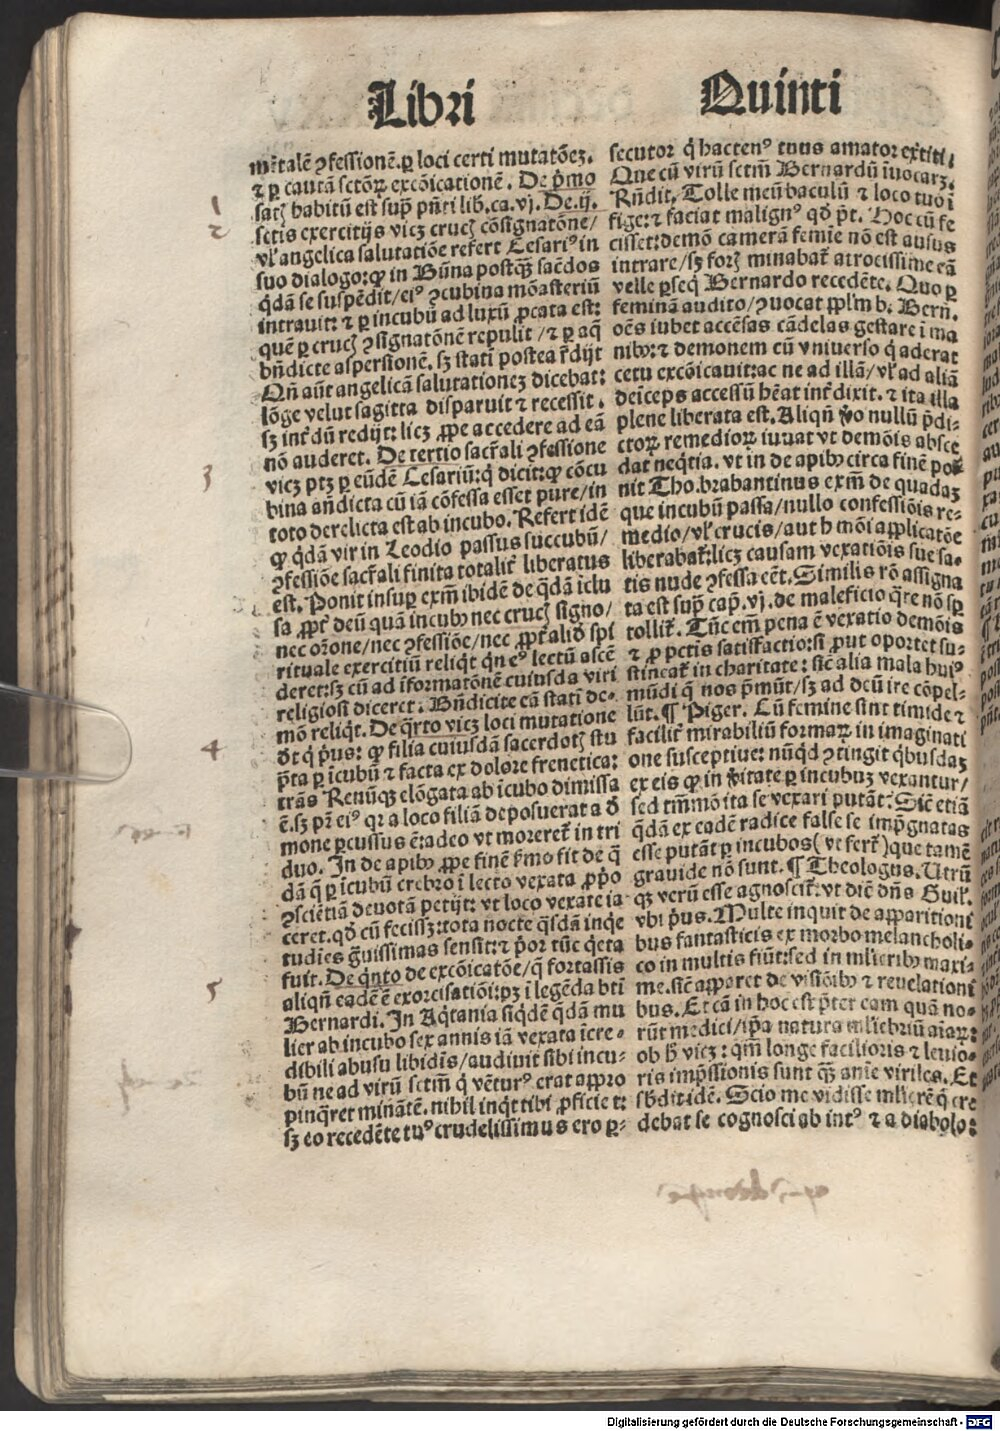 Libri
Quinti
mẽtalẽ ꝯfessionẽ.ꝑ loci certi mutatõeꝫ.
⁊ ꝑ cautã sctõꝝ excõicationẽ. De p̃mo
1
satꝭ habitũ est sup̃ pñti lib̃.ca.vj. De.ij.
2
sctis exercitijs vicꝫ crucꝭ cõsignatõne/
vl̕ angelica salutatiõe refert Cesari⁹ in
suo dialogo:ꝙ in Bũna postqꝫ̃ sacẽdos
q̃dã se suspẽdit/ei⁹ ꝯcubina mõasteriũ
intrauit: ⁊ ꝑ incubũ ad luxũ ꝓcata est:
quẽ ꝑ crucꝭ ꝯsignatõnẽ repulit /⁊ ꝑ aq̃
bñdicte aspersionẽ. sꝫ statĩ postea r̃dijt
Qñ aũt angelicã salutationeꝫ dicebat:
lõge velut sagitta disparuit ⁊ recessit.
sꝫ int̃dũ redijt: licꝫ ꝓpe accedere ad eã
nõ auderet. De tertio sacr̃ali ꝯfessione
3
vicꝫ ptꝫ ꝑ eũdẽ Cesariũ:q̃ dicit:ꝙ cõcu
bina añdicta cũ iã cõfessa esset pure/in
toto derelicta est ab incubo. Refert idẽ
ꝙ q̃dã vir in Leodio passus succubũ/
ꝯfessiõe sacr̃ali finita totalit̃ liberatus
est. Ponit insuꝑ exm̃ ibidẽ de q̃dã iclu
sa ꝓpt̃ deũ quã incubꝰ nec crucꝭ signo/
nec orõne/nec ꝯfessiõe/nec ꝓpt̃ aliq̃ spi
rituale exercitiũ reliq̃t qñ e⁹ lectũ ascẽ
deret:sꝫ cũ ad ĩformatõnẽ cuiusdã viri
religiosi diceret. Bñdicite eã statĩ de⸗
mõ reliq̃t. De q̃rto vicꝫ loci mutatione
4
dt̃ q̃ p̃us: ꝙ filia cuiusdã sacerdotꝭ stu
p̃ta ꝑ ĩcubũ ⁊ facta ex dolore frenetica:
trãs Renũqꝫ elõgata ab ĩcubo dimissa
ẽ.sꝫ pr̃ ei⁹ qꝛ a loco filiã deposuerat a dẽ
mone ꝑcussus ẽ:adeo vt moreret̃ in tri
duo. In de apibꝰ ꝓpe finẽ s̃mo fit de q̃
dã q̃ ꝑ ĩcubũ crebro ĩ lecto vexata ꝓp̃o
ꝯsciẽtiã deuotã petijt: vt loco vexate ia
ceret. qd̃ cũ fecissꝫ:tota nocte q̃sdã inqe
tudĩes g̃uissimas sensit:⁊ p̃or tũc q̃eta
fuit. De q̃nto de excõicatõe/q̃ fortassis
5
aliqñ eadẽ ẽ exorcisatiõi:pꝫ ĩ legẽda bt̃i
Bernardi. In Aq̃tania siq̃dẽ q̃dã mu
lier ab incubo sex annis iã vexata ĩcre⸗
dibili abusu libidĩs/audiuit sibi incu⸗
bũ ne ad virũ sctm̃ q̃ vẽtur⁹ erat appro
pinq̃ret minãtẽ. nihil inq̃t tibi ꝓficiet:
sꝫ eo recedẽte tu⁹ crudelissimus ero ꝑ⸗
secutor q̃ hacten⁹ tuus amator extiti,
Que cũ virũ sctm̃ Bernardũ ĩuocarꝫ.
Rñdit. Tolle meũ baculũ ⁊ loco tuo ĩ
fige:⁊ faciat malign⁹ qd̃ p̃t. Hoc cũ fe
cisset:demõ camerã femĩe nõ est ausus
intrare/sꝫ forꝭ minabat̃ atrocissime eã
velle ꝑseq̃ Bernardo recedẽte. Quo ꝑ
feminã audito/ꝯuocat ppl̃m b. Bern̄.
oẽs iubet accẽsas cãdelas gestare ĩ ma
nibꝰ:⁊ demonem cũ vniuerso q̃ aderat
cetu excõicauit:ac ne ad illã/vl̕ ad aliã
deĩceps accessũ hẽat int̃dixit. ⁊ ita illa
plene liberata est. Aliqñ v̕o nullũ p̃di⸗
ctoꝝ remedioꝝ iuuat vt demõis absce
dat neq̃tia. vt in de apibꝰ circa finẽ po
nit Tho.brabantinus exm̃ de quadaꝫ
que incubũ passa/nullo confessiõis re⸗
medio/vl̕ crucis/aut h̕ mõi applicatõe
liberabat̃:licꝫ causam vexatiõis sue sa⸗
tis nude ꝯfessa eẽt. Similis rõ assigna
ta est sup̃ cap̃.vj.de maleficio q̃re nõ sꝑ
tollit̃. Tũc em̃ pena ẽ vexatio demõis
⁊ ꝓ pctis satisfactio:si ꝓut oportet su⸗
stineat̃ in charitate: sic̃ alia mala hui⁹
mũdi q̃ nos p̃mũt/sꝫ ad deũ ire cõpel⸗
lũt.¶ Piger. Cũ femine sint timide ⁊
facilit̃ mirabiliũ formaꝝ in imaginati
one susceptiue: nũqd̃ ꝯtingit q̃busdaꝫ
ex eis ꝙ in v̕itate ꝑ incubuꝫ vexantur/
sed tm̃mõ ita se vexari putãt: Sic̃ etiã
q̃dã ex eadẽ radice false se imp̃gnatas
esse putãt ꝑ incubos( vt fert̃ )que tamẽ
grauide nõ sunt.¶ Theologus. Utrũ
qꝫ verũ esse agnoscit̃:vt dic̃ dñs Guil̃.
vbi p̃us. Multe inquit de apparitioni
bus fantasticis ex morbo melancholi⸗
co in multis fiũt:sed in ml̕ieribꝰ maxi⸗
me.sic̃ apparet de visiõibꝰ ⁊ reuelationi
bus. Et cã in hoc est p̃ter eam quã no⸗
rũt medici/ip̃a natura ml̕iebriũ aĩaꝝ:
ob h̕ vicꝫ: qm̃ longe facilioris ⁊ leuio⸗
ris imp̃ssionis sunt qꝫ̃ aĩe viriles. Et
sb̕dit:idẽ. Scio me vidisse ml̕ierẽ q̃ cre
debat se cognosci ab int⁹ ⁊ a diabolo:
Digitalisierung gefördert durch die Deutsche Forschungsgemeinschaft - DFG